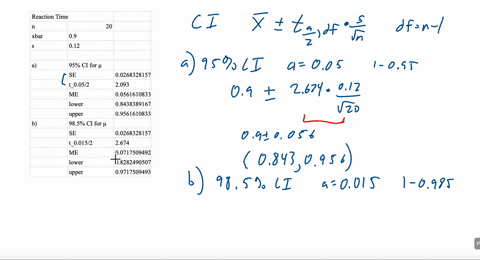 Reaction Time
n 20
xbar 0.9
s 0.12
a) 95% CI for μ
SE 0.0268328157
t_0.05/2 2.093
ME 0.0561610833
lower 0.8438389167
upper 0.9561610833
b) 98.5% CI for μ
SE 0.0268328157
t_0.015/2 2.674
ME 0.0717509492
lower 0.8282490507
upper 0.9717509493
CI X̄ ± t a/2, df • s/√n df = n-1
a) 95% CI a = 0.05 1-0.95
0.9 ± 2.674 • 0.12/√20
0.9 ± 0.056
(0.843, 0.956)
b) 98.5% CI a = 0.015 1-0.985